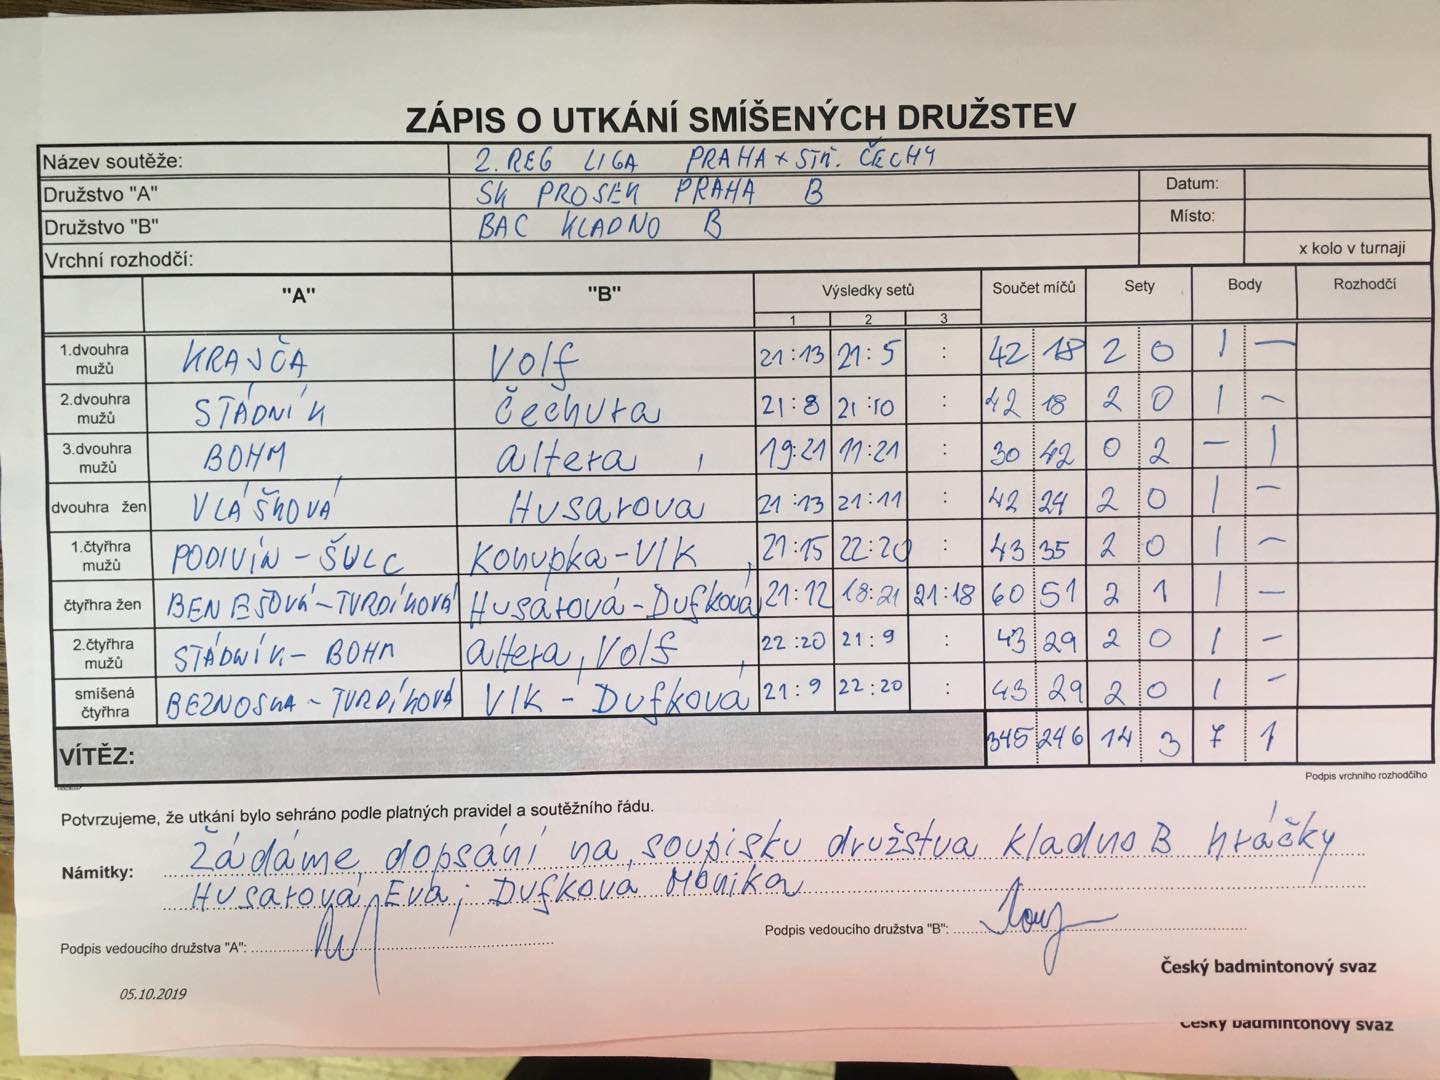 ZÁPIS O UTKÁNÍ SMÍŠENÝCH DRUŽSTEV
Název soutěže: 2. REG LIGA PRAHA + STŘ. ČECHY
Družstvo "A" SK PROSEK PRAHA B Datum:
Družstvo "B" BAC KLADNO B Místo:
Vrchní rozhodčí: x kolo v turnaji
"A" "B" Výsledky setů Součet míčů Sety Body Rozhodčí
1 2 3
1.dvouhra mužů KRAJČA Volf 21:13 21:5 : 42 18 2 0 1 –
2.dvouhra mužů STÁDNÍK Čechura 21:8 21:10 : 42 18 2 0 1 –
3.dvouhra mužů BOHM altera 19:21 11:21 : 30 42 0 2 – 1
dvouhra žen VLÁŠKOVÁ Husarova 21:13 21:11 : 42 24 2 0 1 –
1.čtyřhra mužů PODIVÍN – ŠULC Konupka – Vlk 21:15 22:20 : 43 35 2 0 1 –
čtyřhra žen BENEŠOVÁ – TVRDÍKOVÁ Husárová – Dufková 21:12 18:21 21:18 60 51 2 1 1 –
2.čtyřhra mužů STÁDNÍK – BOHM altera, Volf 22:20 21:9 : 43 29 2 0 1 –
smíšená čtyřhra BEZNOSKA – TVRDÍKOVÁ Vlk – Dufková 21:9 22:20 : 43 29 2 0 1 –
VÍTĚZ: 345 246 14 3 7 1
Podpis vrchního rozhodčího
Potvrzujeme, že utkání bylo sehráno podle platných pravidel a soutěžního řádu.
Námitky: Žádáme dopsání na soupisku družstva kladno B hráčky
Husarová Eva, Dufková Monika
Podpis vedoucího družstva "A": Podpis vedoucího družstva "B":
Český badmintonový svaz
05.10.2019
Český badmintonový svaz